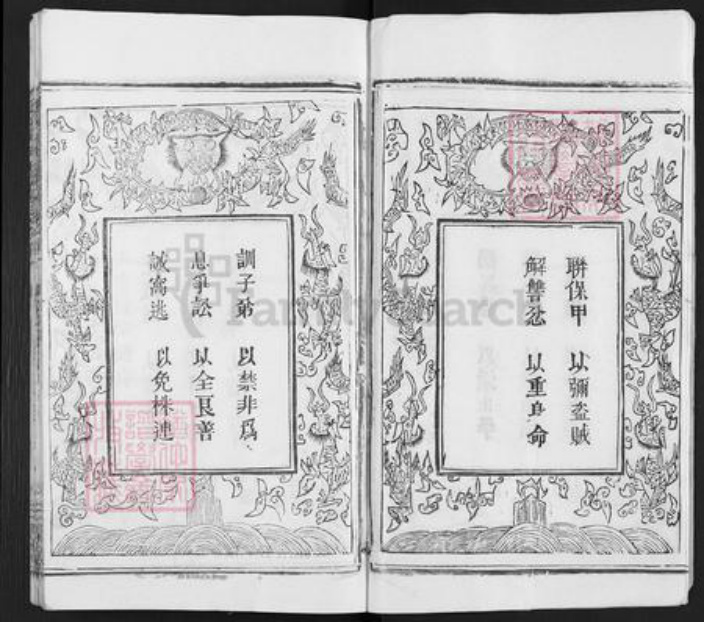 聨保甲 以彌盗賊
解讐忿 以重身命
訓子弟 以禁非爲
息爭訟 以全良善
誡窩逃 以免株連
FamilySearch